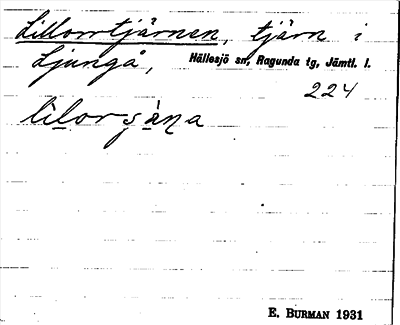 Lillorrtjärnen, tjärn i
Ljungå, Hällesjö sn, Ragunda tg, Jämtl. l.
224
E. BURMAN 1931